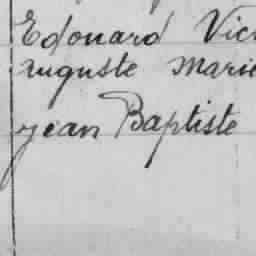 Edouard Vic
Auguste Marie
Jean Baptiste